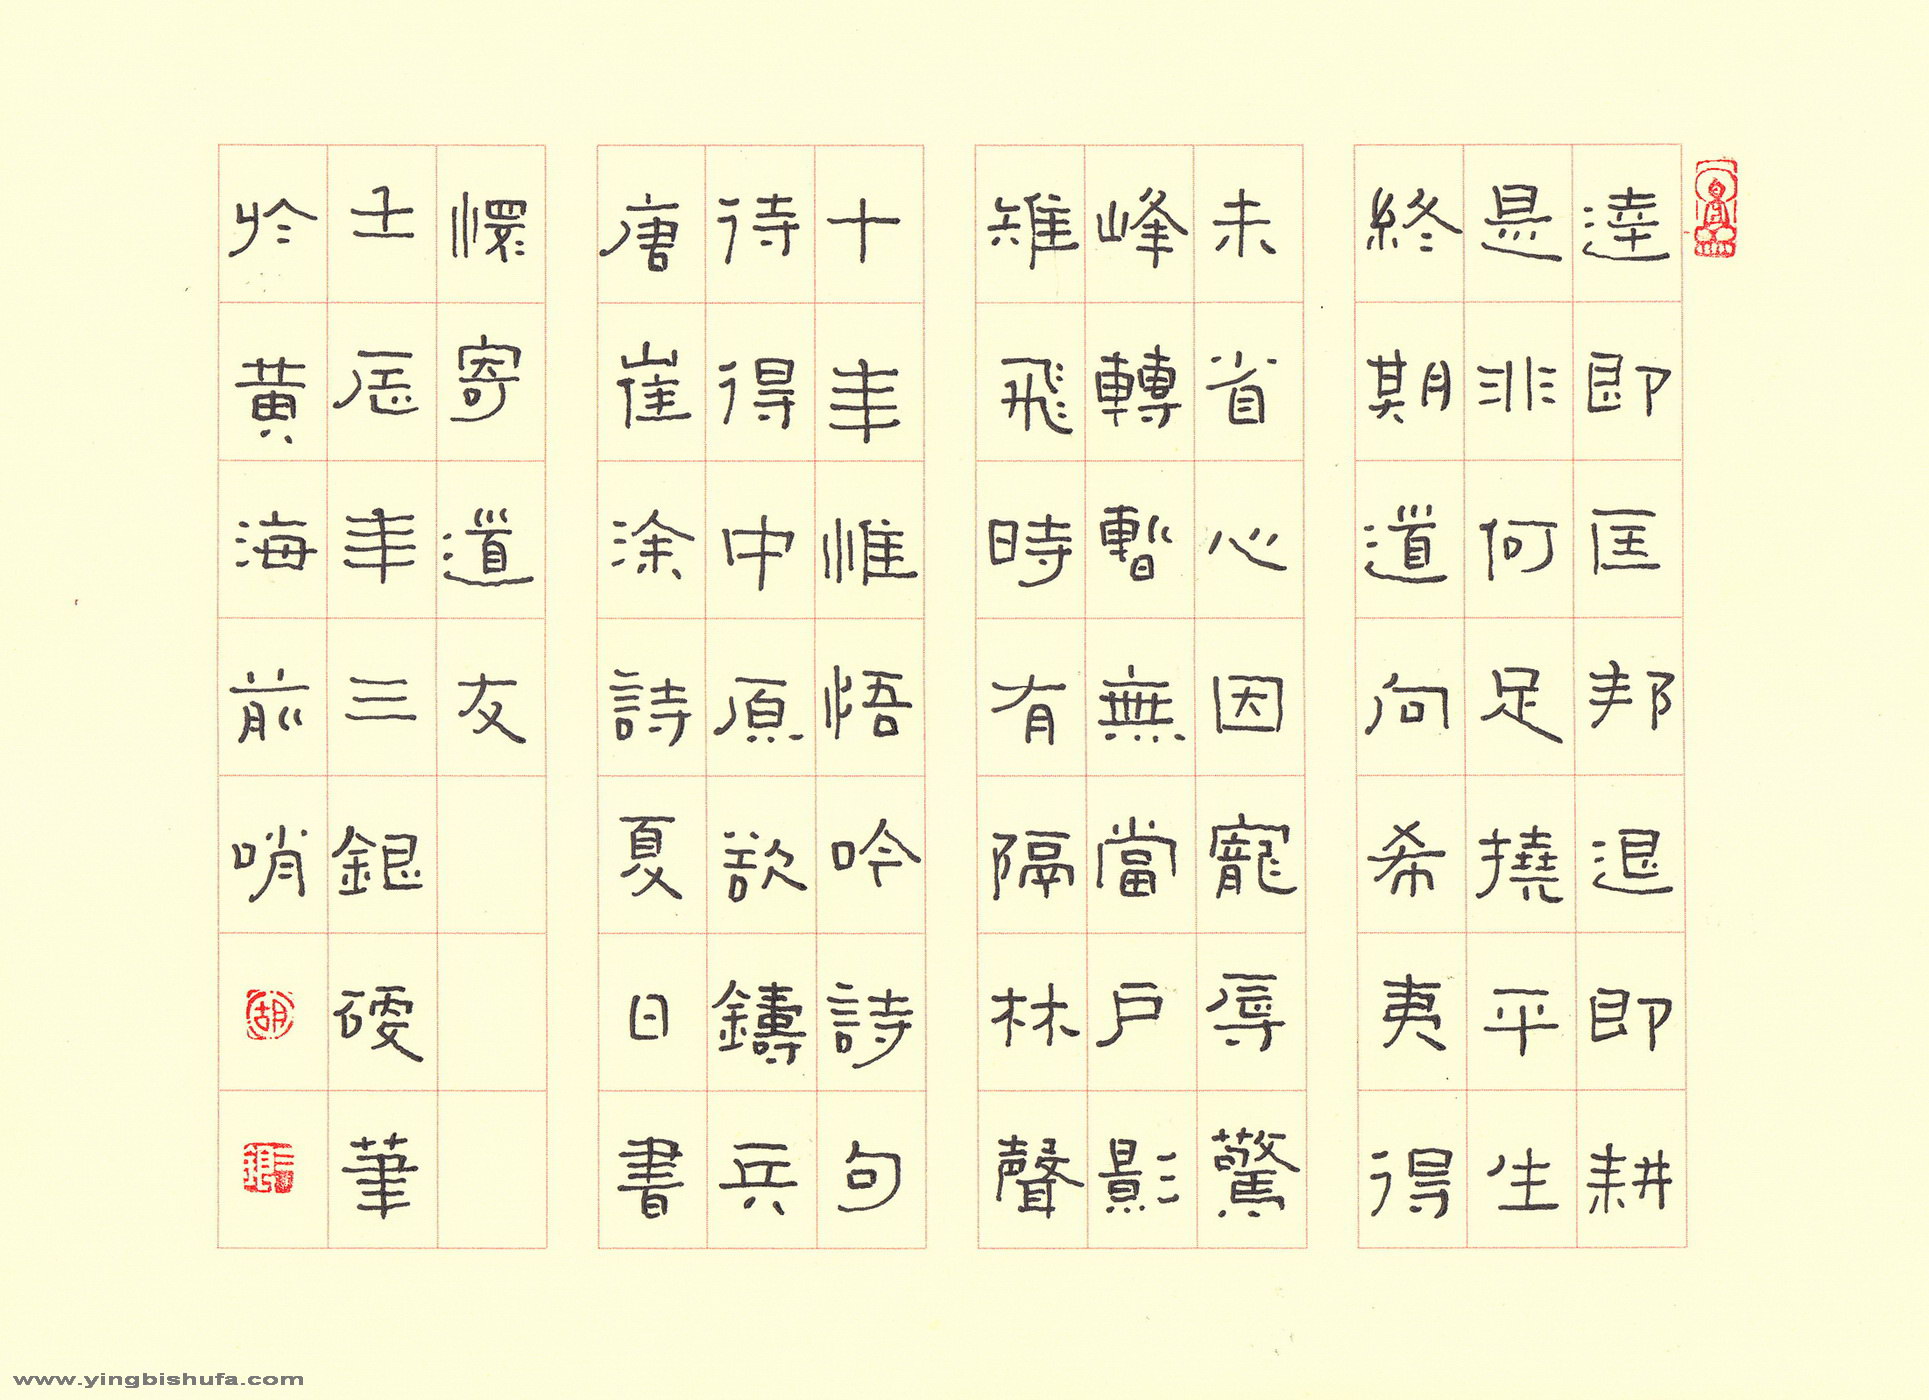 達即匡邦退即耕
是非何足撓平生
終期道向希夷得
未省心因寵辱驚
峰轉暫無當戶影
雉飛時有隔林聲
十年惟悟吟詩句
待得中原欲鑄兵
唐崔涂詩夏日書
懷寄道友
壬辰年三銀硬筆
於黃海前哨
胡
www.yingbishufa.com